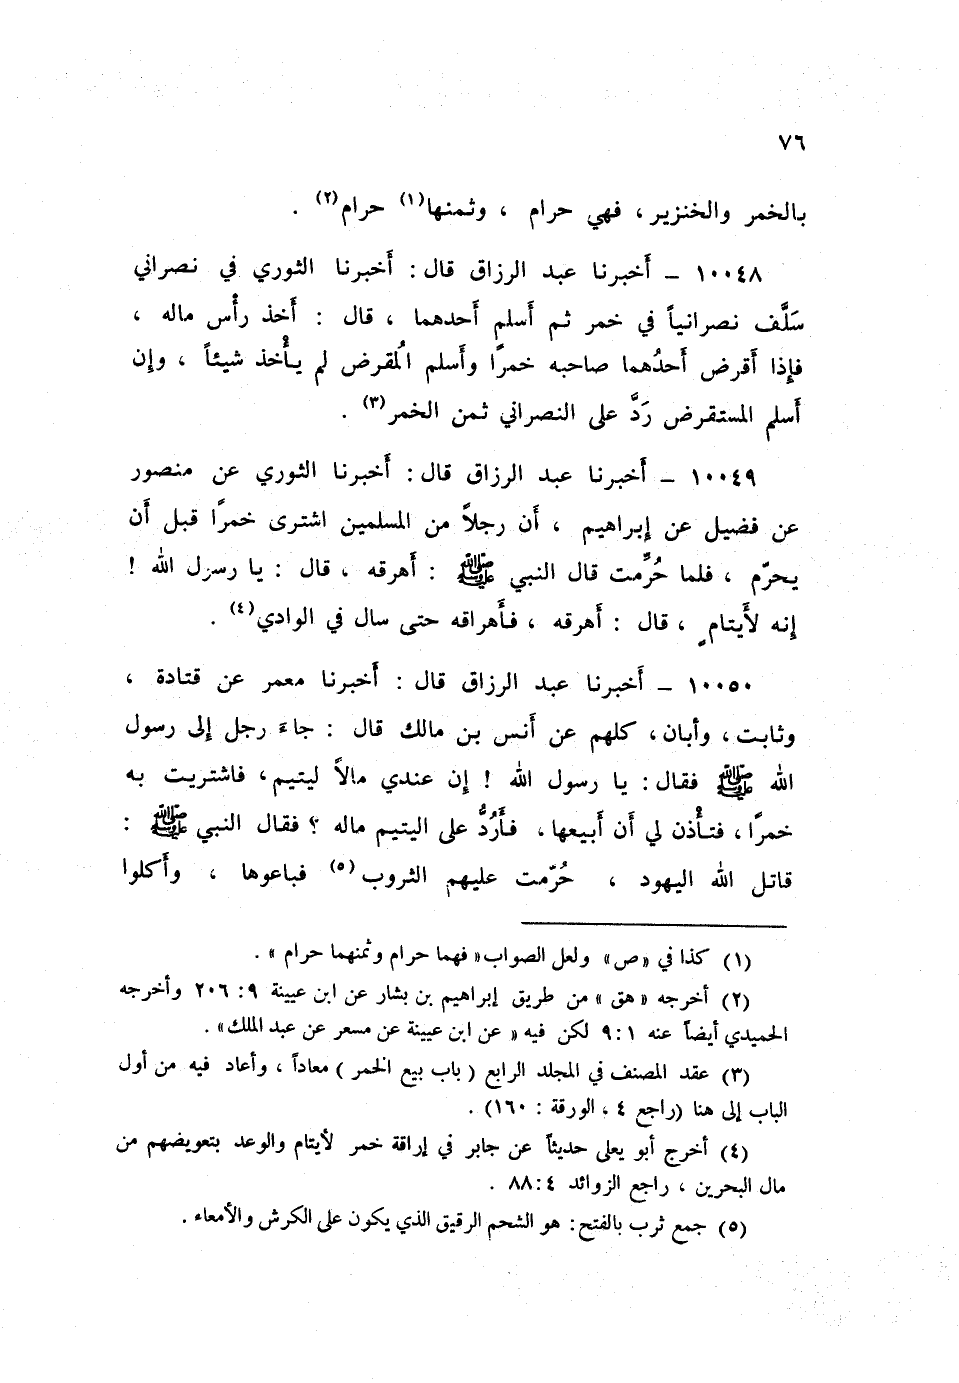 ٧٦
بالخمر والخنزير ، فهي حرام ، وثمنها(١) حرام(٢) .
١٠٠٤٨ – أَخبرنا عبد الرزاق قال : أَخبرنا الثوري في نصراني
سَلَّف نصرانياً في خمر ثم أَسلم أَحدهما ، قال : أَخذ رأْس ماله ،
فإِذا أَقرض أَحدُهما صاحبه خمرًا وأَسلم المُقرض لم يأْخذ شيئاً ، وإِن
أَسلم المستقرض رَدَّ على النصراني ثمن الخمر(٣) .
١٠٠٤٩ – أَخبرنا عبد الرزاق قال : أَخبرنا الثوري عن منصور
عن فضيل عن إِبراهيم ، أَن رجلاً من المسلمين اشترى خمرًا قبل أَن
يحرّم ، فلما حُرِّمت قال النبي ﷺ : أَهرقه ، قال : يا رسول الله !
إِنه لأَيتام ٍ ، قال : أَهرقه ، فأَهراقه حتى سال في الوادي(٤) .
١٠٠٥٠ – أَخبرنا عبد الرزاق قال : أَخبرنا معمر عن قتادة ،
وثابت ، وأَبان ، كلهم عن أَنس بن مالك قال : جاءَ رجل إِلى رسول
الله ﷺ فقال : يا رسول الله ! إِن عندي مالاً ليتيم ، فاشتريت به
خمرًا ، فتأْذن لي أَن أَبيعها ، فأَرُدُّ على اليتيم ماله ؟ فقال النبي ﷺ :
قاتل الله اليهود ، حُرّمت عليهم الثروب(٥) فباعوها ، وأَكلوا
(١) كذا في «ص» ولعل الصواب « فهما حرام وثمنهما حرام » .
(٢) أخرجه «هق» من طريق إبراهيم بن بشار عن ابن عيينة ٩ : ٢٠٦ وأخرجه
الحميدي أيضاً عنه ١ : ٩ لكن فيه « عن ابن عيينة عن مسعر عن عبد الملك » .
(٣) عقد المصنف في المجلد الرابع ( باب بيع الخمر ) معاداً ، وأعاد فيه من أول
الباب إلى هنا (راجع ٤ ، الورقة : ١٦٠) .
(٤) أخرج أبو يعلى حديثاً عن جابر في إراقة خمر لأيتام والوعد بتعويضهم من
مال البحرين ، راجع الزوائد ٤ : ٨٨ .
(٥) جمع ثرب بالفتح : هو الشحم الرقيق الذي يكون على الكرش والأمعاء .